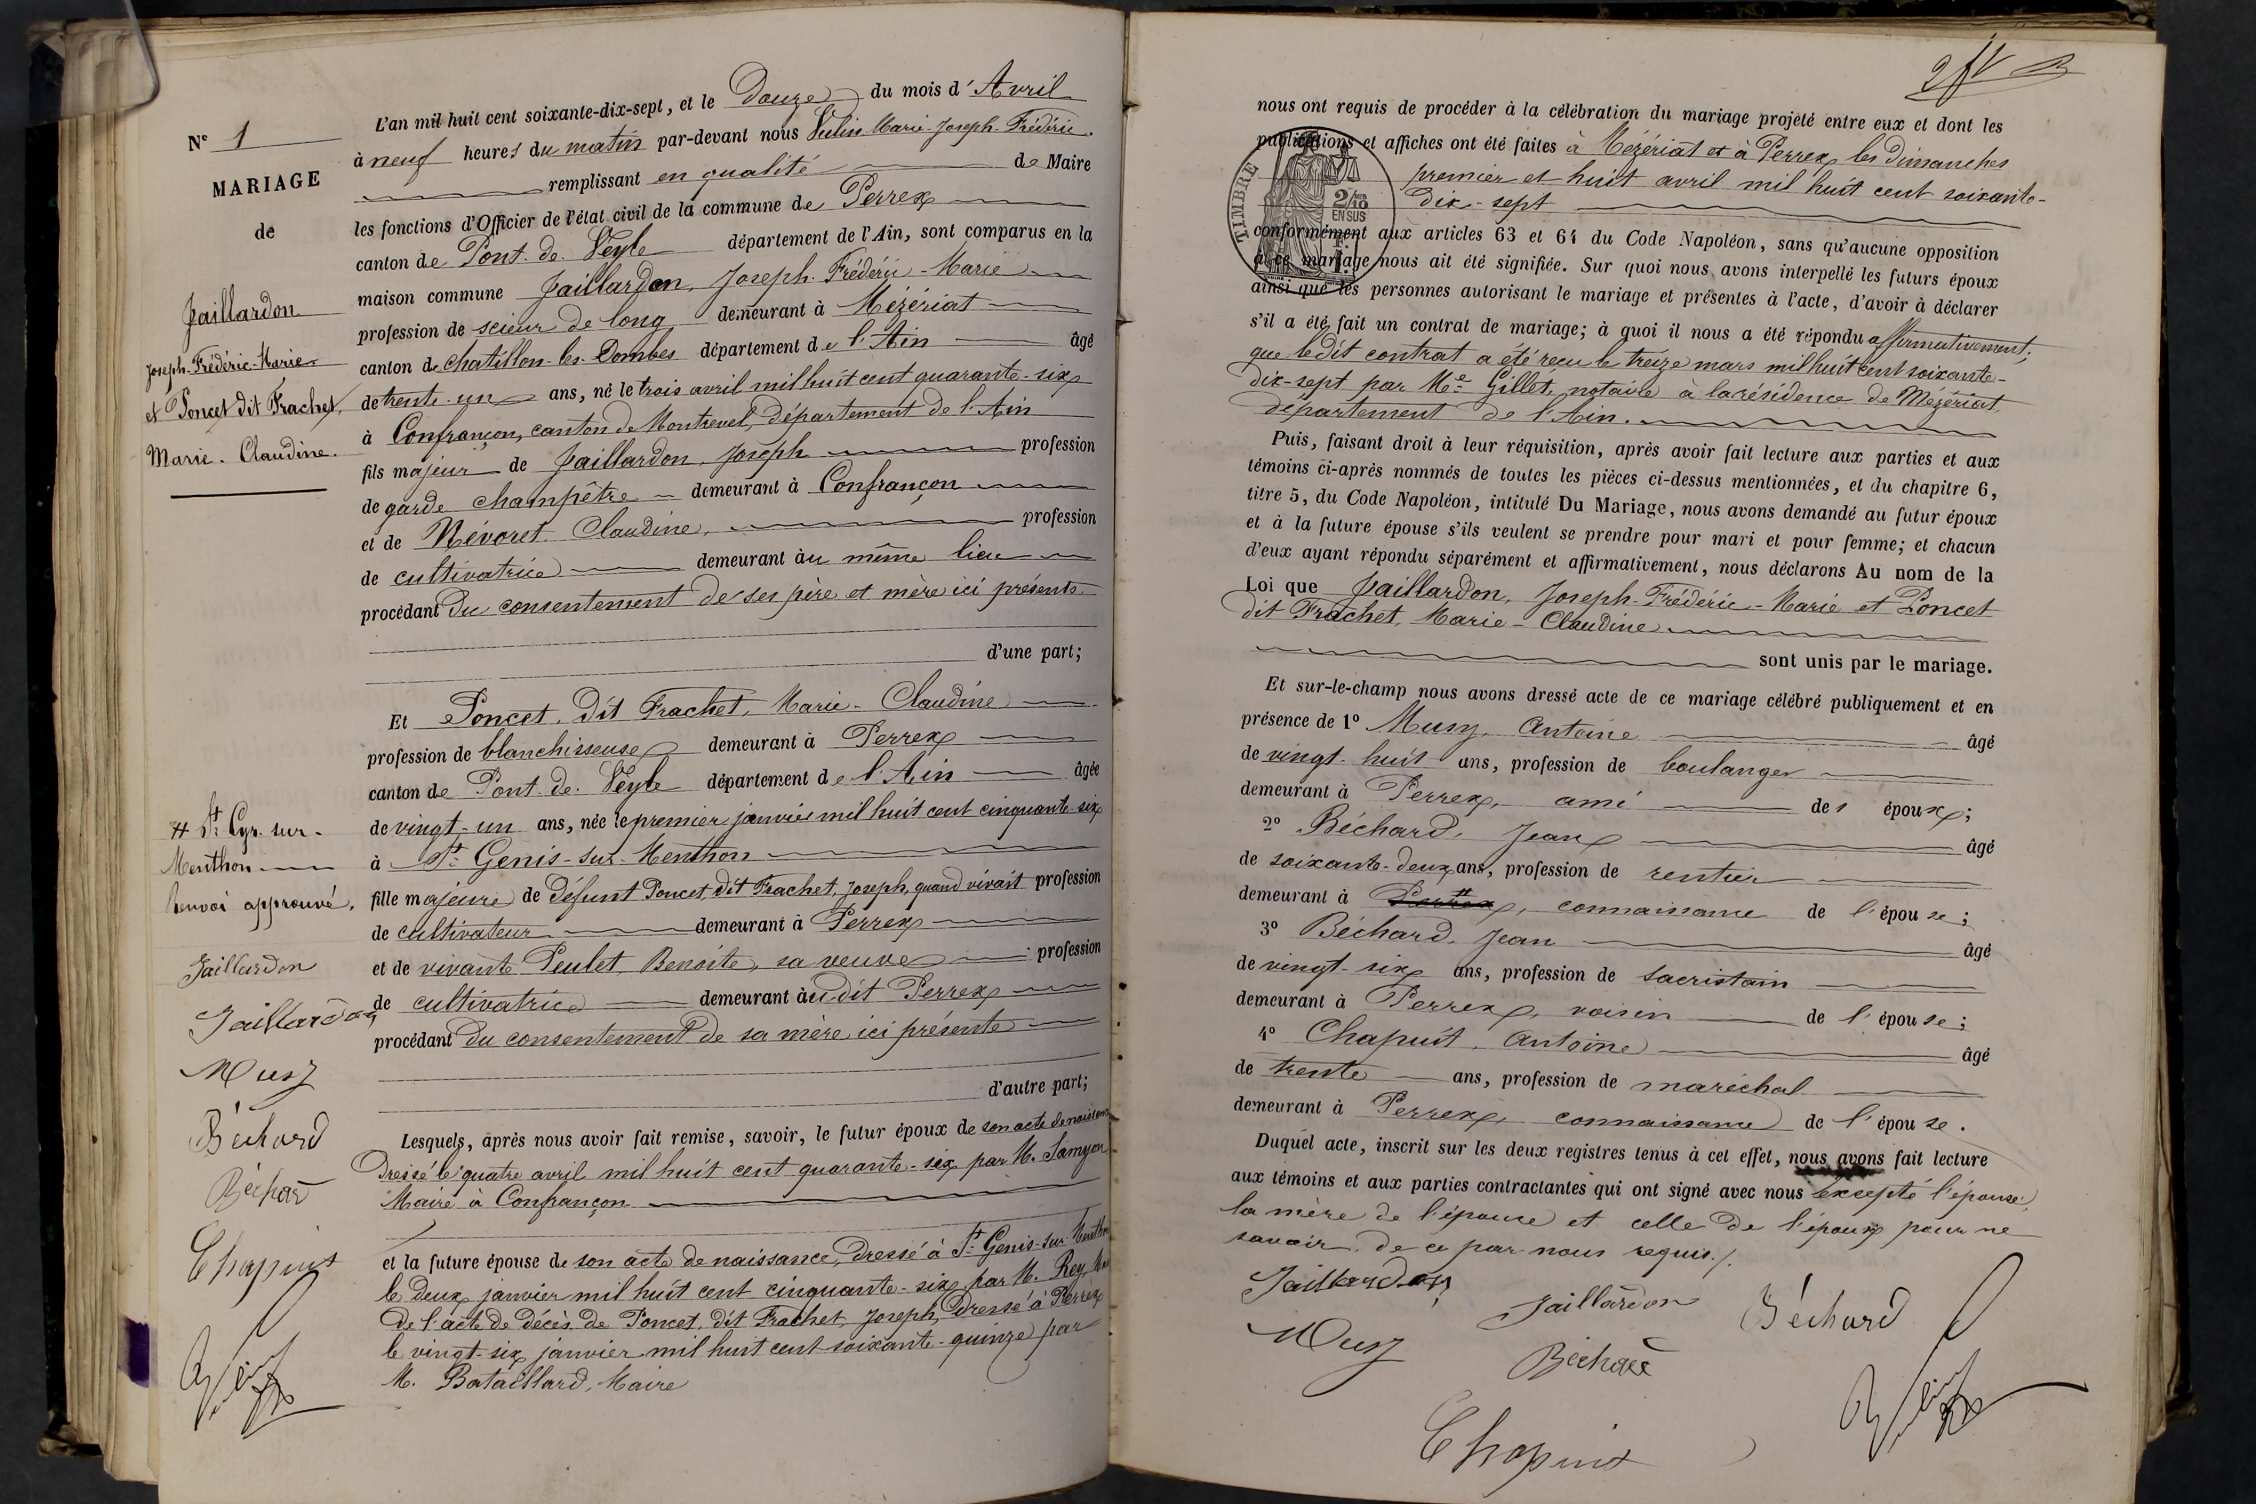 N° 1
MARIAGE
de
Jaillardon
Joseph-Frédéric-Marie
et Poncet dit Frachet,
Marie-Claudine.
# St Cyr-sur-
Menthon
Renvoi approuvé.
Jaillardon
Jaillardon
Musy
Béchard
Béchard
Chapuit
L'an mil huit cent soixante-dix-sept, et le Douze du mois d'Avril
à neuf heures du matin par-devant nous Vulin Marie-Joseph-Frédéric
remplissant en qualité de Maire
les fonctions d'Officier de l'état civil de la commune de Perrex
canton de Pont-de-Veyle département de l'Ain, sont comparus en la
maison commune Jaillardon, Joseph-Frédéric-Marie
profession de scieur de long demeurant à Mézériat
canton de chatillon-les-Dombes département de l'Ain âgé
de trente-un ans, né le trois avril mil huit cent quarante-six
à Confrançon, canton de Montrevel, département de l'Ain
fils majeur de Jaillardon, Joseph profession
de garde champêtre demeurant à Confrançon
et de Névoret Claudine, profession
de cultivatrice demeurant àu même lieu
procédant Du consentement de ses père et mère ici présents
d'une part;
Et Poncet, dit Frachet, Marie-Claudine
profession de blanchisseuse demeurant à Perrex
canton de Pont-de-Veyle département de l'Ain âgée
de vingt-un ans, née le premier janvier mil huit cent cinquante-six
à St Genis-sur-Menthon
fille majeure de Défunt Poncet, dit Frachet, Joseph, quand vivait profession
de cultivateur demeurant à Perrex
et de vivante Peulet, Benoite, sa veuve profession
de cultivatrice demeurant àudit Perrex
procédant Du consentement de sa mère ici présente
d'autre part;
Lesquels, après nous avoir fait remise, savoir, le futur époux de son acte de naissance
Dressé le quatre avril mil huit cent quarante-six par M. Samyon
Maire à Confrançon
et la future épouse de son acte de naissance, Dressé à St Genis-sur-Menthon
le deux janvier mil huit cent cinquante-six par M. Rey, Maire
De l'acte de Décès de Poncet, dit Frachet, Joseph, Dressé à Perrex
le vingt-six janvier mil huit cent soixante-quinze par
M. Bataillard, Maire
nous ont requis de procéder à la célébration du mariage projeté entre eux et dont les
publications et affiches ont été faites à Mézériat et à Perrex les dimanches
premier et huit avril mil huit cent soixante-
dix-sept
TIMBRE
2/10
EN SUS
conformément aux articles 63 et 64 du Code Napoléon, sans qu'aucune opposition
à ce mariage nous ait été signifiée. Sur quoi nous avons interpellé les futurs époux
ainsi que les personnes autorisant le mariage et présentes à l'acte, d'avoir à déclarer
s'il a été fait un contrat de mariage; à quoi il nous a été répondu affirmativement;
que le dit contrat a été reçu le treize mars mil huit cent soixante-
dix-sept par Me Gillet, notaire à la résidence de Mézériat,
département de l'Ain.
Puis, faisant droit à leur réquisition, après avoir fait lecture aux parties et aux
témoins ci-après nommés de toutes les pièces ci-dessus mentionnées, et du chapitre 6,
titre 5, du Code Napoléon, intitulé Du Mariage, nous avons demandé au futur époux
et à la future épouse s'ils veulent se prendre pour mari et pour femme; et chacun
d'eux ayant répondu séparément et affirmativement, nous déclarons Au nom de la
Loi que Jaillardon, Joseph-Frédéric-Marie et Poncet
dit Frachet, Marie-Claudine
sont unis par le mariage.
Et sur-le-champ nous avons dressé acte de ce mariage célébré publiquement et en
présence de 1° Musy, Antoine âgé
de vingt-huit ans, profession de boulanger
demeurant à Perrex, ami des époux;
2° Béchard, Jean âgé
de soixante-deux ans, profession de rentier
demeurant à Perrex #, connaissance de l'épouse;
3° Béchard, Jean âgé
de vingt-six ans, profession de sacristain
demeurant à Perrex, voisin de l'épouse;
4° Chapuit, Antoine âgé
de trente ans, profession de maréchal
demeurant à Perrex, connaissance de l'épouse.
Duquel acte, inscrit sur les deux registres tenus à cet effet, nous avons fait lecture
aux témoins et aux parties contractantes qui ont signé avec nous excepté l'épouse,
la mère de l'épouse et celle de l'époux pour ne
savoir, de ce par nous requis./.
Jaillardon
Jaillardon
Béchard
Musy
Béchard
Chapuit